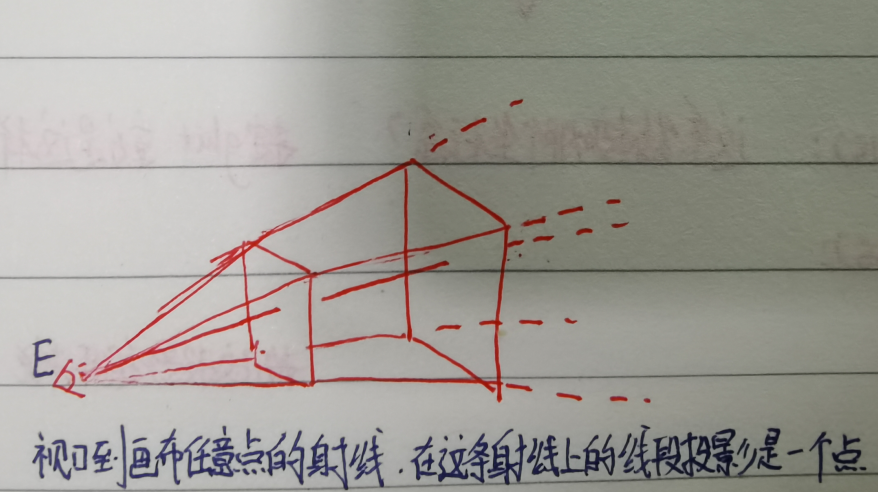 E
视口到画布任意点的射线.在这条射线上的线段投影是一个点